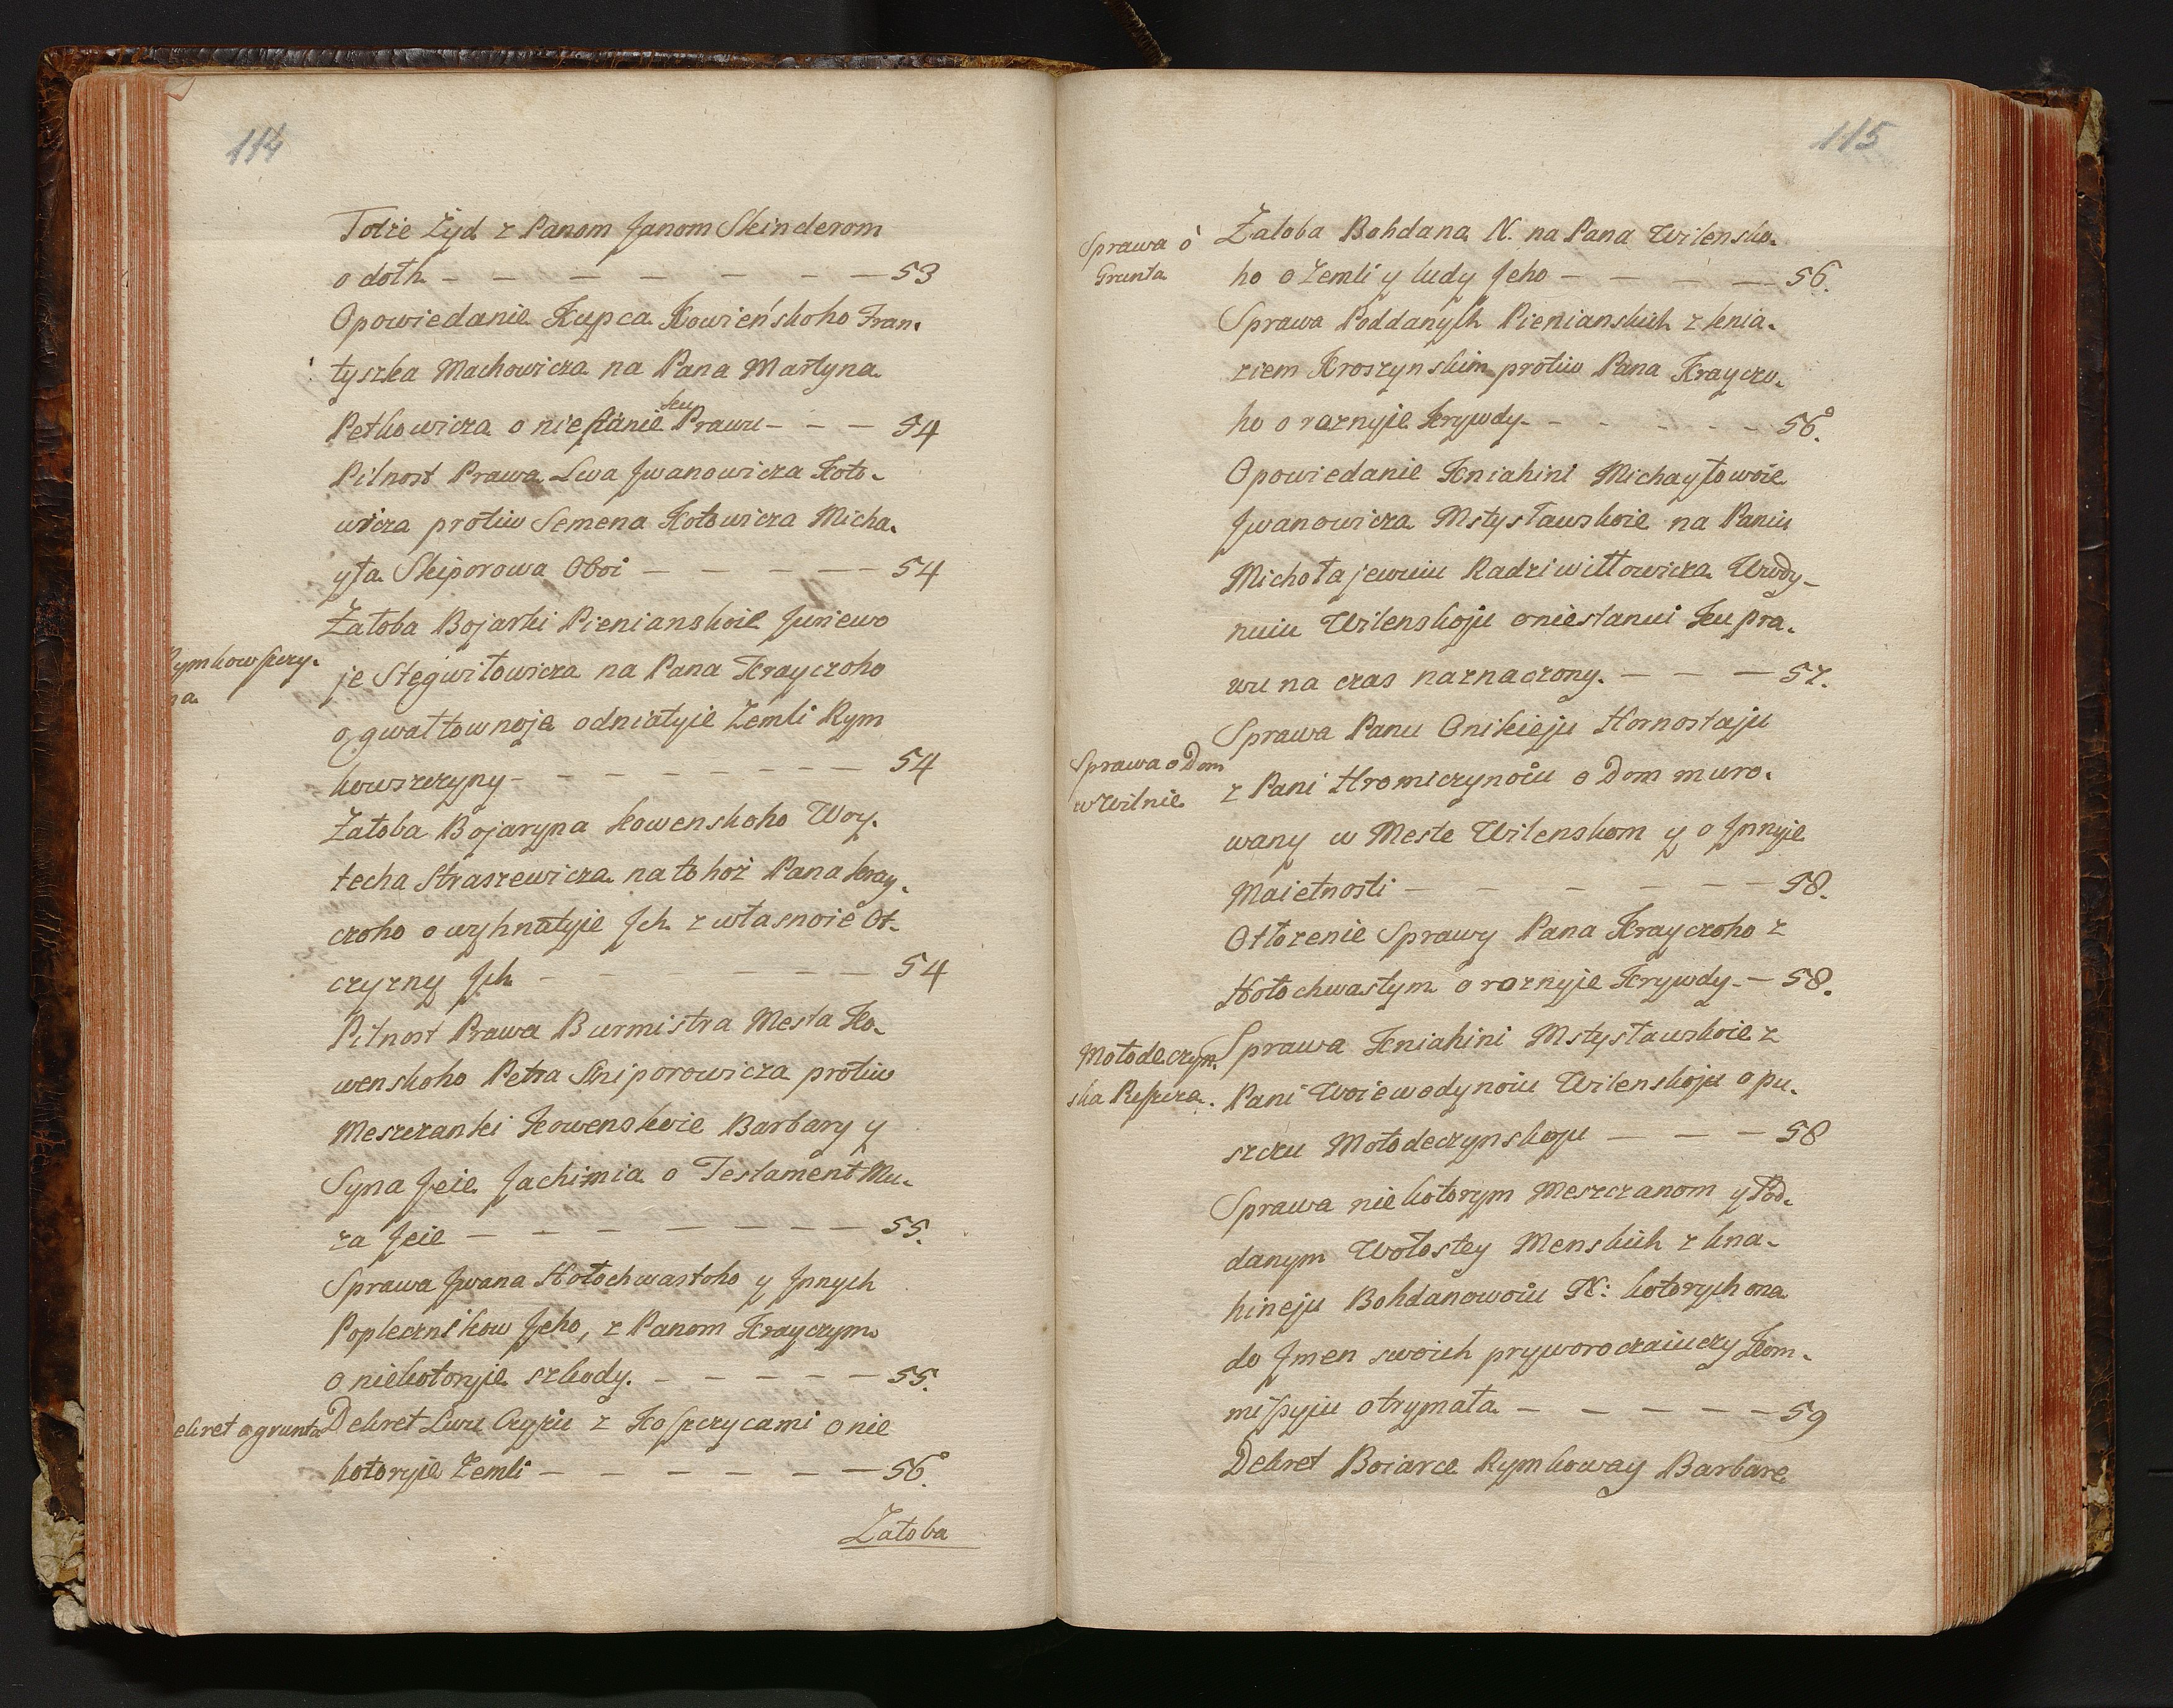 114
Totże Żyd z Panom Janom Skinderom
o dołh — — — — — — — — 53
Opowiedanie Kupca Kowieńskoho Fran-
tyszka Machowicza na Pana Martyna
Petkowicza o niestanie ku Prawu — — — 54
Pilnost Prawa Lwa Jwanowicza Koto-
wicza protiw Semena Kotowicza Micha-
yła Skiporowa Oboi — — — — — 54
Żałoba Bojarki Pienianskoie Juriewo
Rymkowszczy-
na
je Stęgwiłowicza na Pana Krayczoho
o gwałtownoje odniatyie Zemli Rym
kowszczyny — — — — — — — — 54
Żałoba Bojaryna Kowenskoho Woy-
techa Straszewicza na tohoż Pana Kray-
czoho o wyhnatyie Jch z własnoie Ot-
czyzny Jch — — — — — — 54
Pilnost Prawa Burmistra Mesta Ko-
wenskoho Petra Sniporowicza protiw
Meszczanki Kowenskoie Barbary y
Syna Jeie Jachimia o Testament Mu-
ża Jeie — — — — — — — 55.
Sprawa Jwana Hołochwastoho y Jnnych
Poplecznikow Jeho, z Panom Krayczym
o niekotoryie szkody. — — — — — 55.
ekret o grunta
Dekret Lwu Czyżu z Koszczycami o nie
kotoryie Zemli — — — — — — 56.
Żałoba
115
Sprawa o
Grunta
Żałoba Bohdana N. na Pana Wilensko-
ho o Zemli y ludy Jeho — — — — — 56.
Sprawa Poddanych Pienianskich z knia-
ziem Kroszynskim protiw Pana Krayczo-
ho o roznyie Krywdy — — — — — 56.
Opowiedanie Kniahini Michayłowoie
Jwanowicza Mstysławskoie na Paniu
Michołajewuiu Radziwiłłowicza Wody-
nuiu Wilenskoju o niestanui Ku pra-
wu na czas naznaczony. — — — 57.
Sprawa Panu Onikieju Hornostaju
Sprawa o Dom
w Wilnie
z Pani Hromiczynoiu o Dom muro-
wany w Meste Wilenskom y o Jnnyie
Maietnosti — — — — — — — 58.
Otłożenie Sprawy Pana Krayczoho z
Hołochwastym o roznyie Krywdy — 58.
Mołodeczyn-
ska Puszcza.
Sprawa Kniahini Mstysławskoie z
Pani Woiewodynoiu Wilenskoju o pu-
szczu Mołodeczynskoju — — — 58
Sprawa niekotorym Meszczanom y Pod-
danym Wołostey Menskich z kna-
hineju Bohdanowoiu N: kotorych ona
do Jmen swoich pryworoczaiuczy Kom-
missyiu otrymała — — — — — 59
Dekret Boiarce Rymkoway Barbare